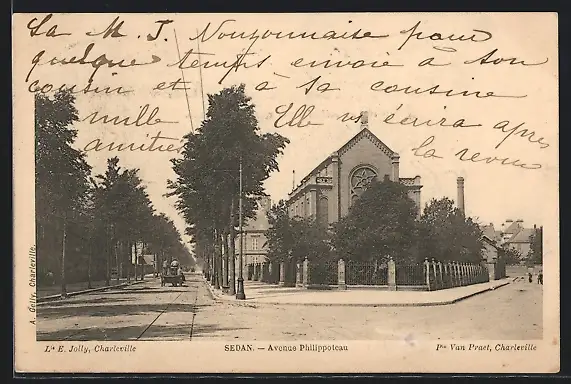 La M. J. Nouzonnaise pour
quelque temps envoie à son
cousin et à sa cousine
mille Elle vs écrira après
amitiés la revue
A. Golly, Charleville.
Lie E. Jolly, Charleville
SEDAN. — Avenue Philippoteau
Pse Van Praet, Charleville